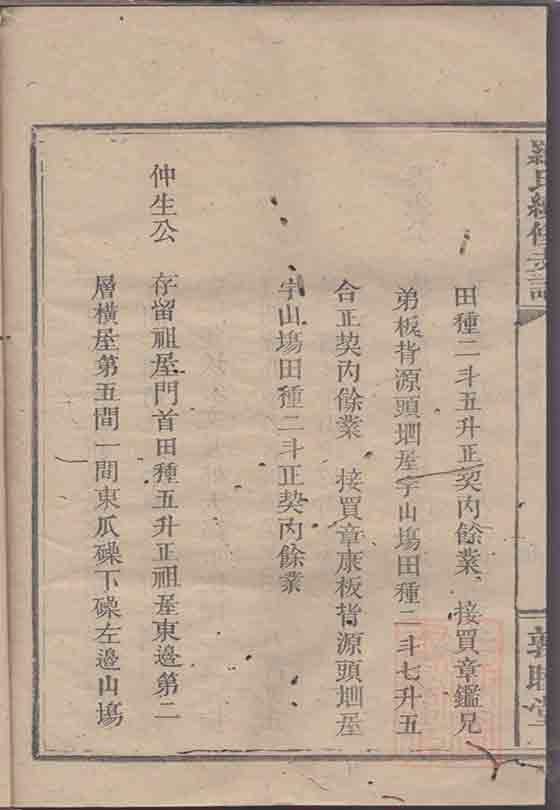 羅氏續修支譜
敦睦堂
田種二斗五升正契内餘業 接買章鑑兄
弟板背源頭𡋾屋字山塲田種二斗七升五
合正契内餘業 接買章康板背源頭𡋾屋
字山塲田種二斗正契内餘業
仲生公 存留祖屋門首田種五升正祖屋東邊第二
層橫屋第五間一間東瓜磜下磜左邊山塲